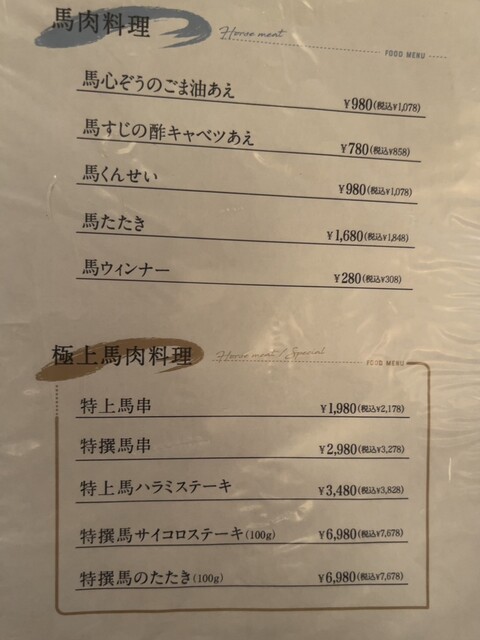 馬肉料理 Horse meat
FOOD MENU
馬心ぞうのごま油あえ ¥980(税込¥1,078)
馬すじの酢キャベツあえ ¥780(税込¥858)
馬くんせい ¥980(税込¥1,078)
馬たたき ¥1,680(税込¥1,848)
馬ウィンナー ¥280(税込¥308)
極上馬肉料理 Horse meat / Special
FOOD MENU
特上馬串 ¥1,980(税込¥2,178)
特撰馬串 ¥2,980(税込¥3,278)
特上馬ハラミステーキ ¥3,480(税込¥3,828)
特撰馬サイコロステーキ(100g) ¥6,980(税込¥7,678)
特撰馬のたたき(100g) ¥6,980(税込¥7,678)